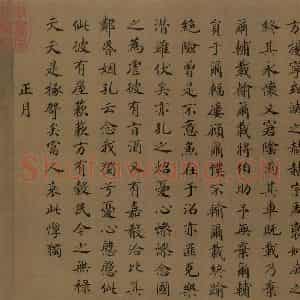 終其永懷又窘陰雨其車既載乃棄
爾輔載輸爾載將伯助予無棄爾輔
員于爾輻屢顧爾僕不輸爾載終踰
絕險曾是不意魚在于沼亦匪克樂
潛雖伏矣亦孔之炤憂心慘慘念國
之為虐彼有旨酒又有嘉殽洽比其
鄰昏姻孔云念我獨兮憂心慇慇佌
佌彼有屋蔌蔌方有穀民今之無祿
天夭是椓哿矣富人哀此惸獨
正月